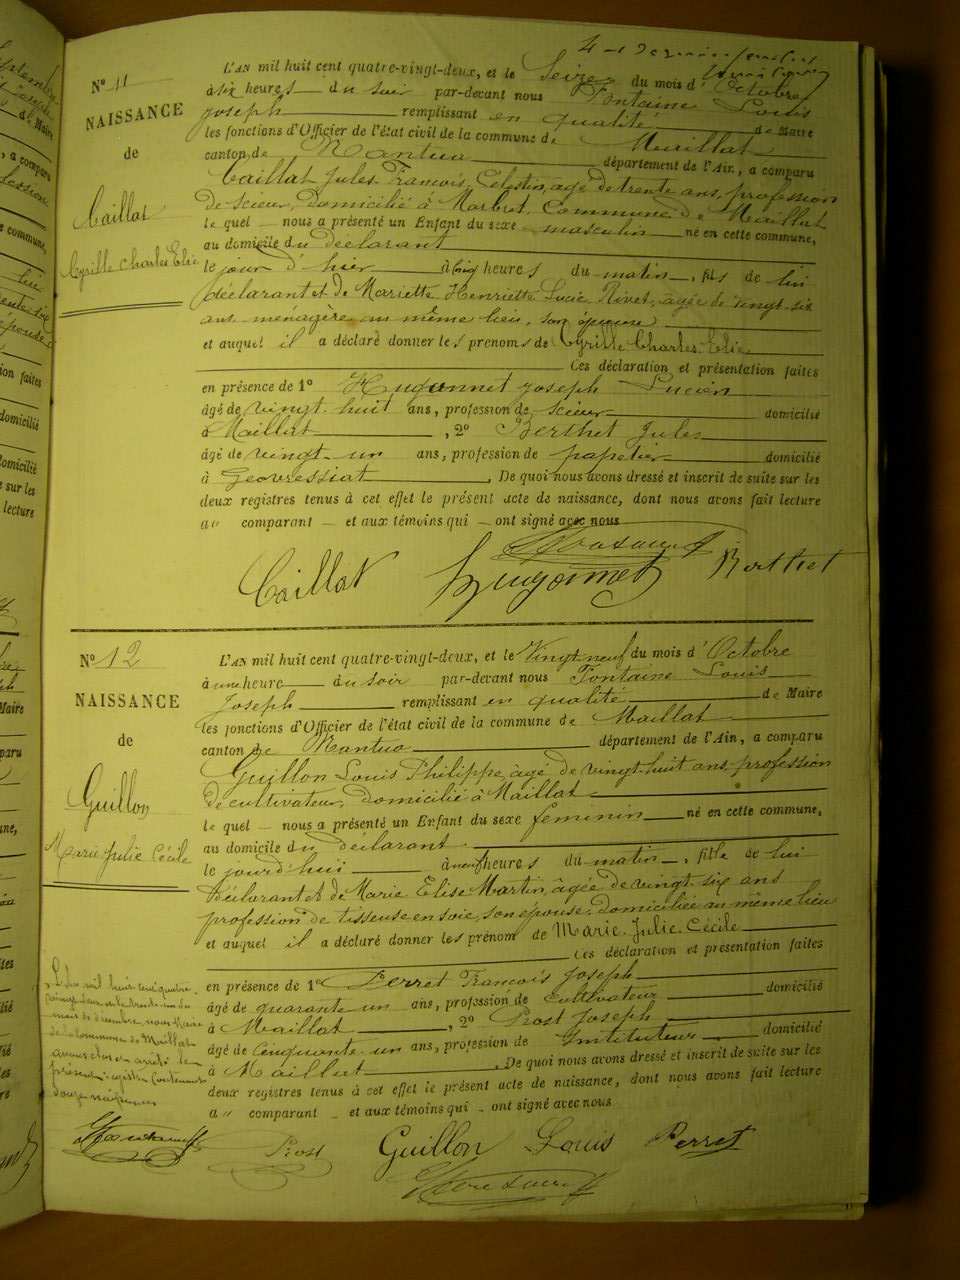 N° 11
NAISSANCE
de
Caillat
Cyrille Charles Elie
L'AN mil huit cent quatre-vingt-deux, et le Seize du mois d'Octobre
à six heures du soir par-devant nous Fontaine Louis
Joseph remplissant en qualité de Maire
les fonctions d'Officier de l'état civil de la commune de Maillat
canton de Nantua département de l'Ain, a comparu
Caillat Jules François Célestin, âgé de trente ans, profession
de scieur, domicilié à Morbret, Commune de Maillat
le quel nous a présenté un Enfant du sexe masculin né en cette commune,
au domicile du déclarant
le jour d'hier à cinq heures du matin, fils de lui
déclarant et de Mariette Henriette Lucie Rivet, âgée de vingt-six
ans ménagère au même lieu, son épouse
et auquel il a déclaré donner les prénoms de Cyrille Charles Elie
Ces déclaration et présentation faites
en présence de 1° Hugonnet Joseph Lucien
âgé de vingt-huit ans, profession de scieur domicilié
à Maillat, 2° Berthet Jules
âgé de vingt-un ans, profession de papetier domicilié
à Géovressiat. De quoi nous avons dressé et inscrit de suite sur les
deux registres tenus à cet effet le présent acte de naissance, dont nous avons fait lecture
au comparant et aux témoins qui ont signé avec nous
Caillat Hugonnet Berthet
N° 12
NAISSANCE
de
Guillon
Marie Julie Cécile
L'AN mil huit cent quatre-vingt-deux, et le Vingt neuf du mois d'Octobre
à une heure du soir par-devant nous Fontaine Louis
Joseph remplissant en qualité de Maire
les fonctions d'Officier de l'état civil de la commune de Maillat
canton de Nantua département de l'Ain, a comparu
Guillon Louis Philippe, âgé de vingt-huit ans, profession
de cultivateur, domicilié à Maillat
le quel nous a présenté un Enfant du sexe féminin né en cette commune,
au domicile du déclarant
le jourd'hui à neuf heures du matin, fille de lui
déclarant et de Marie Elise Martin, âgée de vingt-six ans
profession de tisseuse en soie, son épouse, domiciliée au même lieu
et auquel il a déclaré donner les prénom de Marie Julie Cécile
Ces déclaration et présentation faites
en présence de 1° Perret François Joseph
âgé de quarante-un ans, profession de cultivateur domicilié
à Maillat, 2° Prost Joseph
âgé de Cinquante-un ans, profession de Instituteur domicilié
à Maillat. De quoi nous avons dressé et inscrit de suite sur les
deux registres tenus à cet effet le présent acte de naissance, dont nous avons fait lecture
au comparant et aux témoins qui ont signé avec nous
L'an mil huit cent quatre
vingt deux et le trente-un du
mois de décembre, nous Maire
de la commune de Maillat
avons clos et arrêté le
présent registre contenant
douze naissances
Prost Guillon Louis Perret